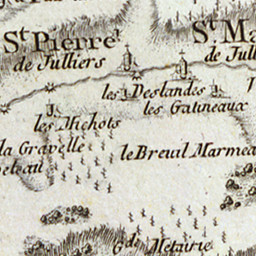 St Pierre
de Julliers
St Ma
de Jull
les Deslandes
les Gatineaux
les Michots
la Gravelle
le Breuil Marmea
G de Metairie